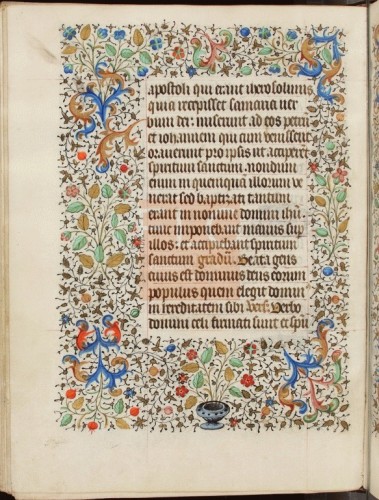 apostoli qui erant iherosolimis
quia recepisset samaria uer
bum dei: miserunt ad eos petrū
et iohannem qui cum uenissent
orauerunt pro ipsis ut acciperēt
spiritum sanctum. nondum
enim in quemquam illorum ue
nerat sed baptizati tantum
erant in nomine domini ihū
tunc imponebant manus sup
illos: et accipiebant spiritum
sanctum gradū. Beata gens
cuius est dominus deus eorum
populus quem elegit dominus
in hereditatem sibi vers. Verbo
domini celi firmati sunt et spū